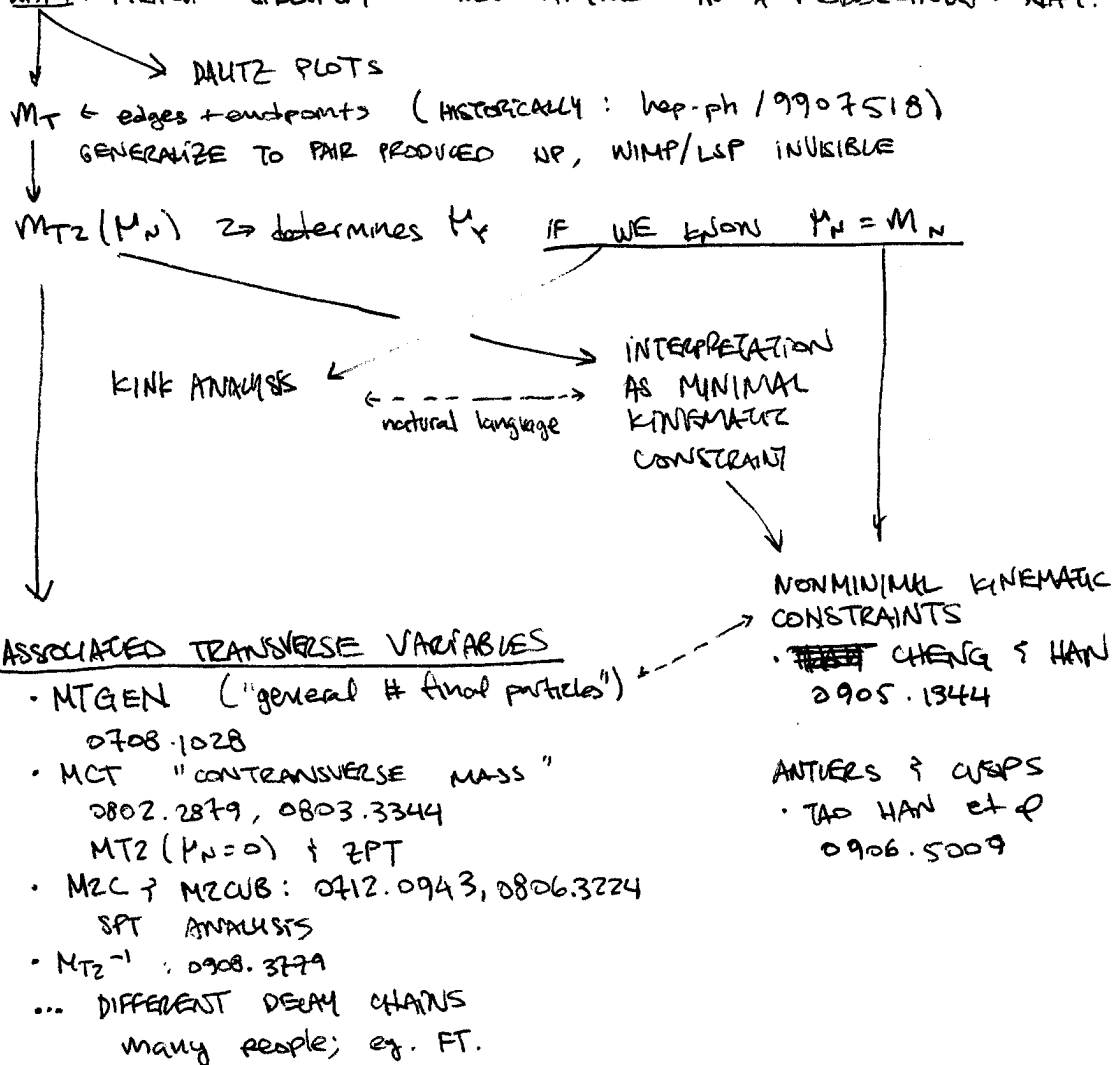 DALITZ PLOTS
MT ← edges + endpoints (HISTORICALLY: hep-ph/9907518)
GENERALIZE TO PAIR PRODUCED NP, WIMP/LSP INVISIBLE
MT2(μN) determines μY IF WE KNOW μN = MN
KINK ANALYSIS
natural language
INTERPRETATION
AS MINIMAL
KINEMATIC
CONSTRAINT
NONMINIMAL KINEMATIC
CONSTRAINTS
· CHENG & HAN
0905.1344
ASSOCIATED TRANSVERSE VARIABLES
· MTGEN ("general # final particles")
0708.1028
· MCT "CONTRANSVERSE MASS"
0802.2879, 0803.3344
MT2 (μN=0) & ZPT
· M2C & M2CUB: 0712.0943, 0806.3224
SPT ANALYSIS
· MT2⁻¹ : 0908.3779
... DIFFERENT DECAY CHAINS
many people; eg. FT.
ANTLERS & CUSPS
· TAO HAN et al
0906.5009